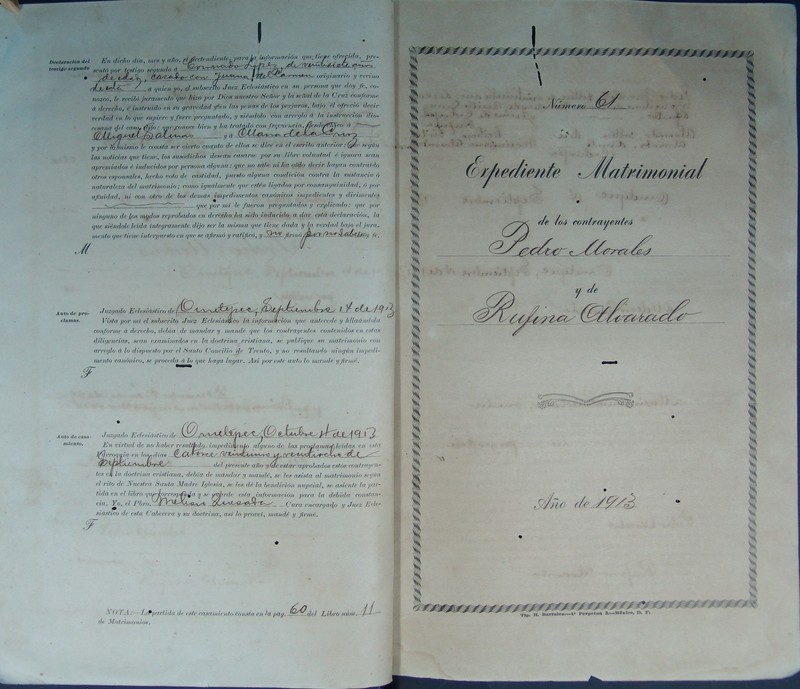 Declaración del testigo segundo
En dicho día, mes y año, el pretendiente para la información que tiene ofrecida, pre-
sentó por testigo segundo á Conrado Lopez, de veintisiete años
de edad, casado con Juana originario y vecino
de esta á quien yo, el subscrito Juez Eclesiástico en su persona que doy fe, co-
nozco, le recibí juramento que hizo por Dios nuestro Señor y la señal de la Cruz conforme
á derecho, é instruido en su gravedad y en las penas de los perjuros, bajo él ofreció decir
verdad en lo que supiere y fuere preguntado, y siéndolo con arreglo á la instrucción dio-
cesana del caso dijo: que conoce bien y ha tratado con frecuencia, desde niños á
Miguel Salina y á Maria de la Cruz
y por lo mismo le consta ser cierto cuanto de ellos se dice en el escrito anterior: que según
las noticias que tiene, los susodichos desean casarse por su libre voluntad é ignora sean
apremiados é inducidos por persona alguna: que no sabe ni ha oído decir hayan contraído
otros esponsales, hecho voto de castidad, puesto alguna condición contra la sustancia ó
naturaleza del matrimonio; como igualmente que estén ligados por consanguinidad, ó por
afinidad, ni con otro de los demás impedimentos canónicos impedientes y dirimentes
que por mí le fueron preguntados y explicado: que por
ninguno de los modos reprobados en derecho ha sido inducido á dar esta declaración, la
que siéndole leída íntegramente dijo ser la misma que tiene dada y la verdad bajo el jura-
mento que tiene interpuesto en que se afirmó y ratificó, y no firmó por no saber
M
Auto de pro-
clamas.
Juzgado Eclesiástico de Ometepec, Septiembre 14 de 1913
Vista por mí el subscrito Juez Eclesiástico la información que antecede y hallándola
conforme á derecho, debía de mandar y mandé que los contrayentes contenidos en estas
diligencias, sean examinados en la doctrina cristiana, se publique su matrimonio con
arreglo á lo dispuesto por el Santo Concilio de Trento, y no resultando ningún impedi-
mento canónico, se proceda á lo que haya lugar. Así por este auto lo mandé y firmé.
F
Auto de casa-
miento.
Juzgado Eclesiástico de Ometepec, Octubre 4 de 1913
En virtud de no haber resultado impedimento alguno de las proclamas leídas en esta
Parroquia en los días catorce veintiuno y veintiocho de
Septiembre del presente año y de estar aprobados estos contrayen-
tes en la doctrina cristiana, debía de mandar y mandé, se les asista al matrimonio según
el rito de Nuestra Santa Madre Iglesia, se les dé la bendición nupcial, se asiente la par-
tida en el libro que corresponda y se guarde esta información para la debida constan-
cia. Yo, el Pbro. Melesio Quesada Cura encargado y Juez Ecle-
siástico de esta Cabecera y su doctrina, así lo proveí, mandé y firmé.
F
NOTA:—La partida de este casamiento consta en la pág. 60 del Libro núm. 11
de Matrimonios.
Número 61
Expediente Matrimonial
de los contrayentes
Pedro Morales
y de
Rufina Alvarado
Año de 1913
Tip. H. Barrales.—1ª Perpetua 3.—México, D. F.